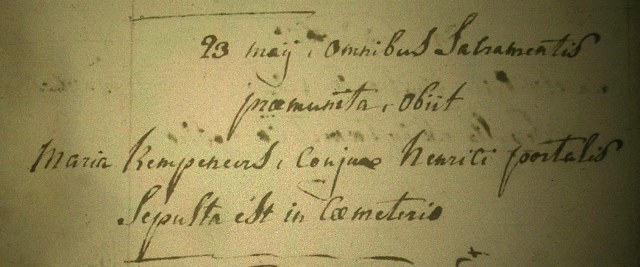 23 maij, omnibus Sacramentis
præmunita, obiit
Maria Kempeneers, Conjux henrici portalis
Sepulta est in Cœmeterio